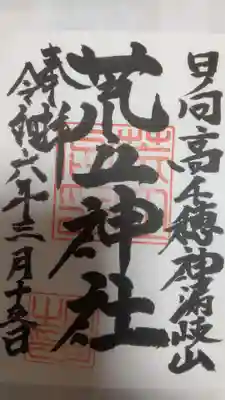 日向高千穂神漏岐山
荒立神社
奉拝
令和六年三月十五日